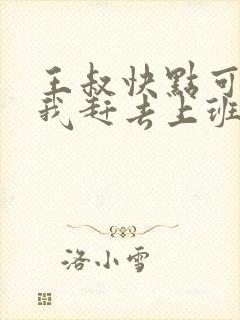 王叔快點可
我赶去上班
洛小雪